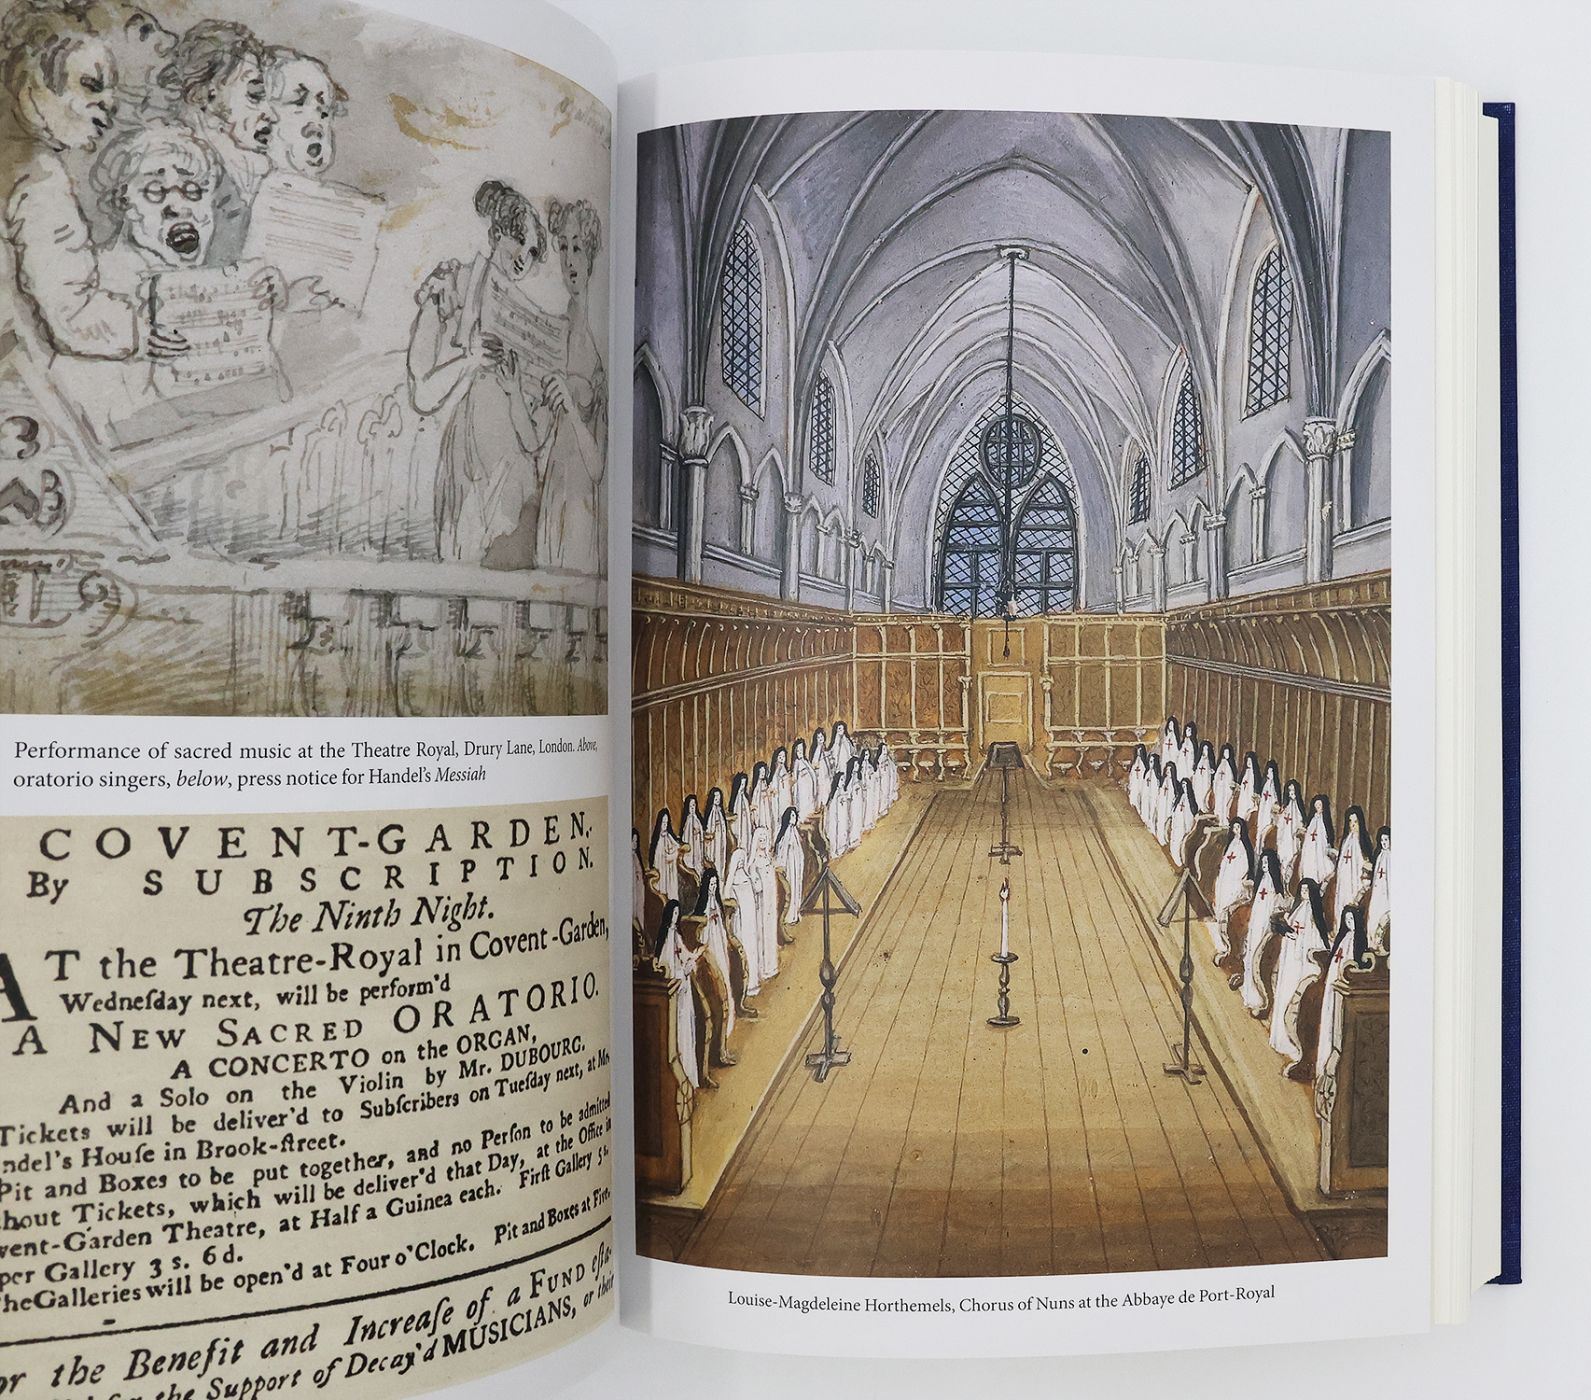 Performance of sacred music at the Theatre Royal, Drury Lane, London. Above,
oratorio singers, below, press notice for Handel's Messiah
COVENT-GARDEN.
By SUBSCRIPTION.
The Ninth Night.
AT the Theatre-Royal in Covent-Garden,
Wedneſday next, will be perform'd
A NEW SACRED ORATORIO.
A CONCERTO on the ORGAN,
And a Solo on the Violin by Mr. DUBOURG.
Tickets will be deliver'd to Subſcribers on Tueſday next, at Mr.
ndel's Houſe in Brook-ſtreet.
Pit and Boxes to be put together, and no Perſon to be admitted
hout Tickets, which will be deliver'd that Day, at the Office in
vent-Garden Theatre, at Half a Guinea each. Firſt Gallery 5s.
per Gallery 3 s. 6 d.
heGalleries will be open'd at Four o'Clock. Pit and Boxes at Five.
or the Benefit and Increaſe of a FUND eſta-
for the Support of Decay'd MUSICIANS, or their
Louise-Magdeleine Horthemels, Chorus of Nuns at the Abbaye de Port-Royal